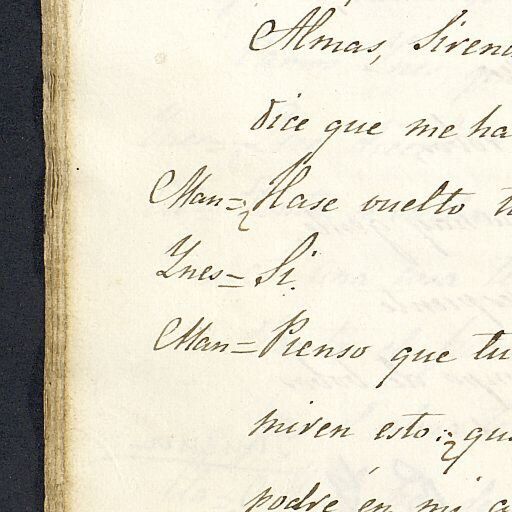 Almas, Siren
dice que me ha
Man=¿Hase vuelto t
Ynes= Si.
Man= Pienso que tu
miren esto: ¿qu
podré en mi a